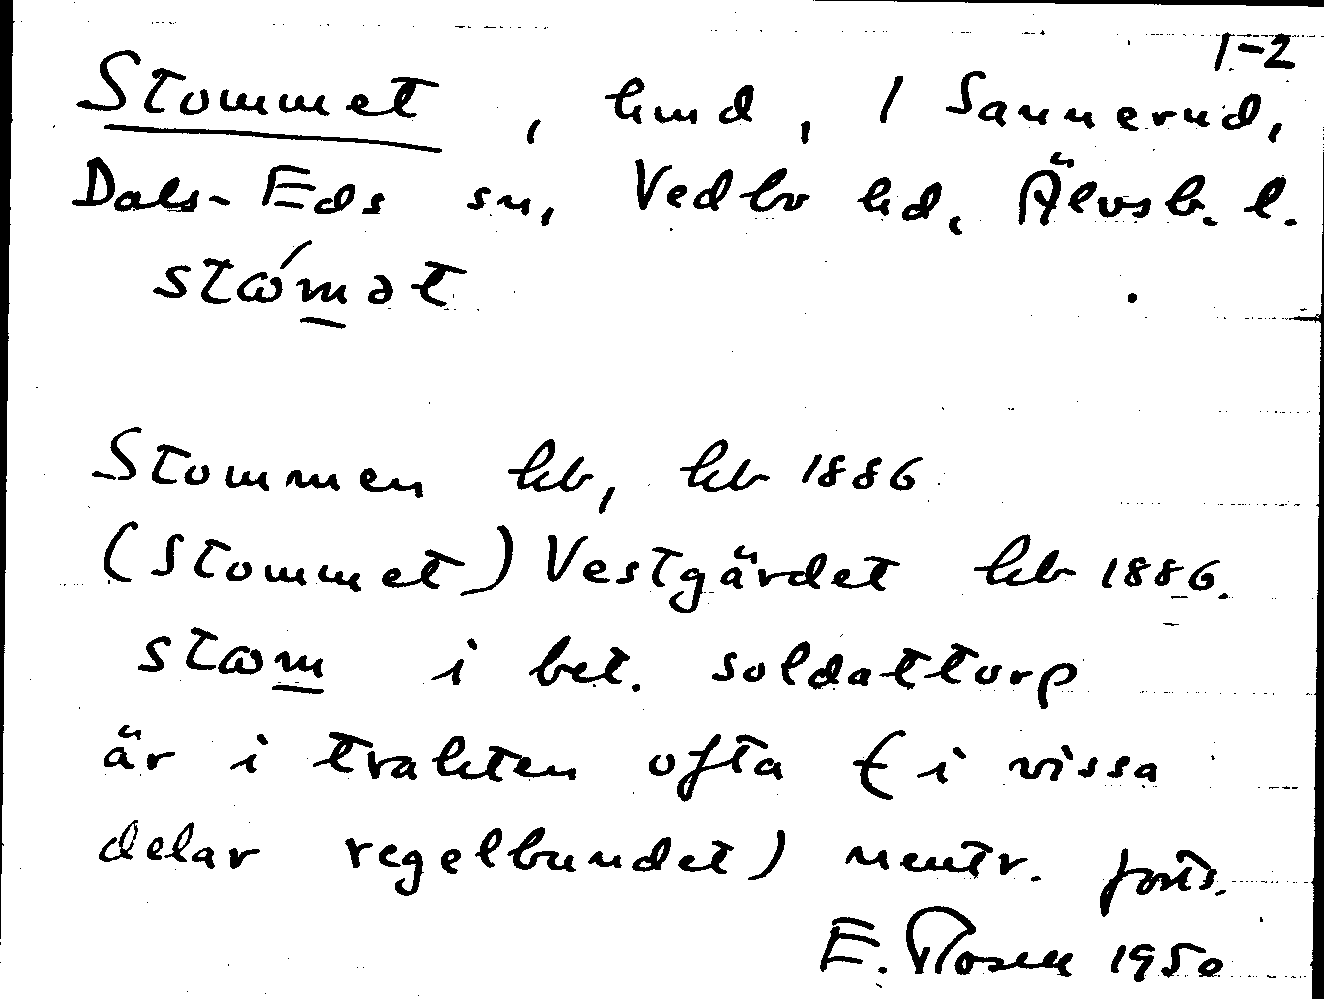 1-2
Stommet, hmd, 1 Sannerud,
Dals-Eds sn, Vedbo hd, Älvsb. l.
stɷ́m̲ət
Stommen kb, kb 1886
(Stommet) Vestgärdet kb 1886.
stɷm̲ i bet. soldattorp
är i trakten ofta (i vissa
delar regelbundet) neutr. forts.
E. Rosell 1950